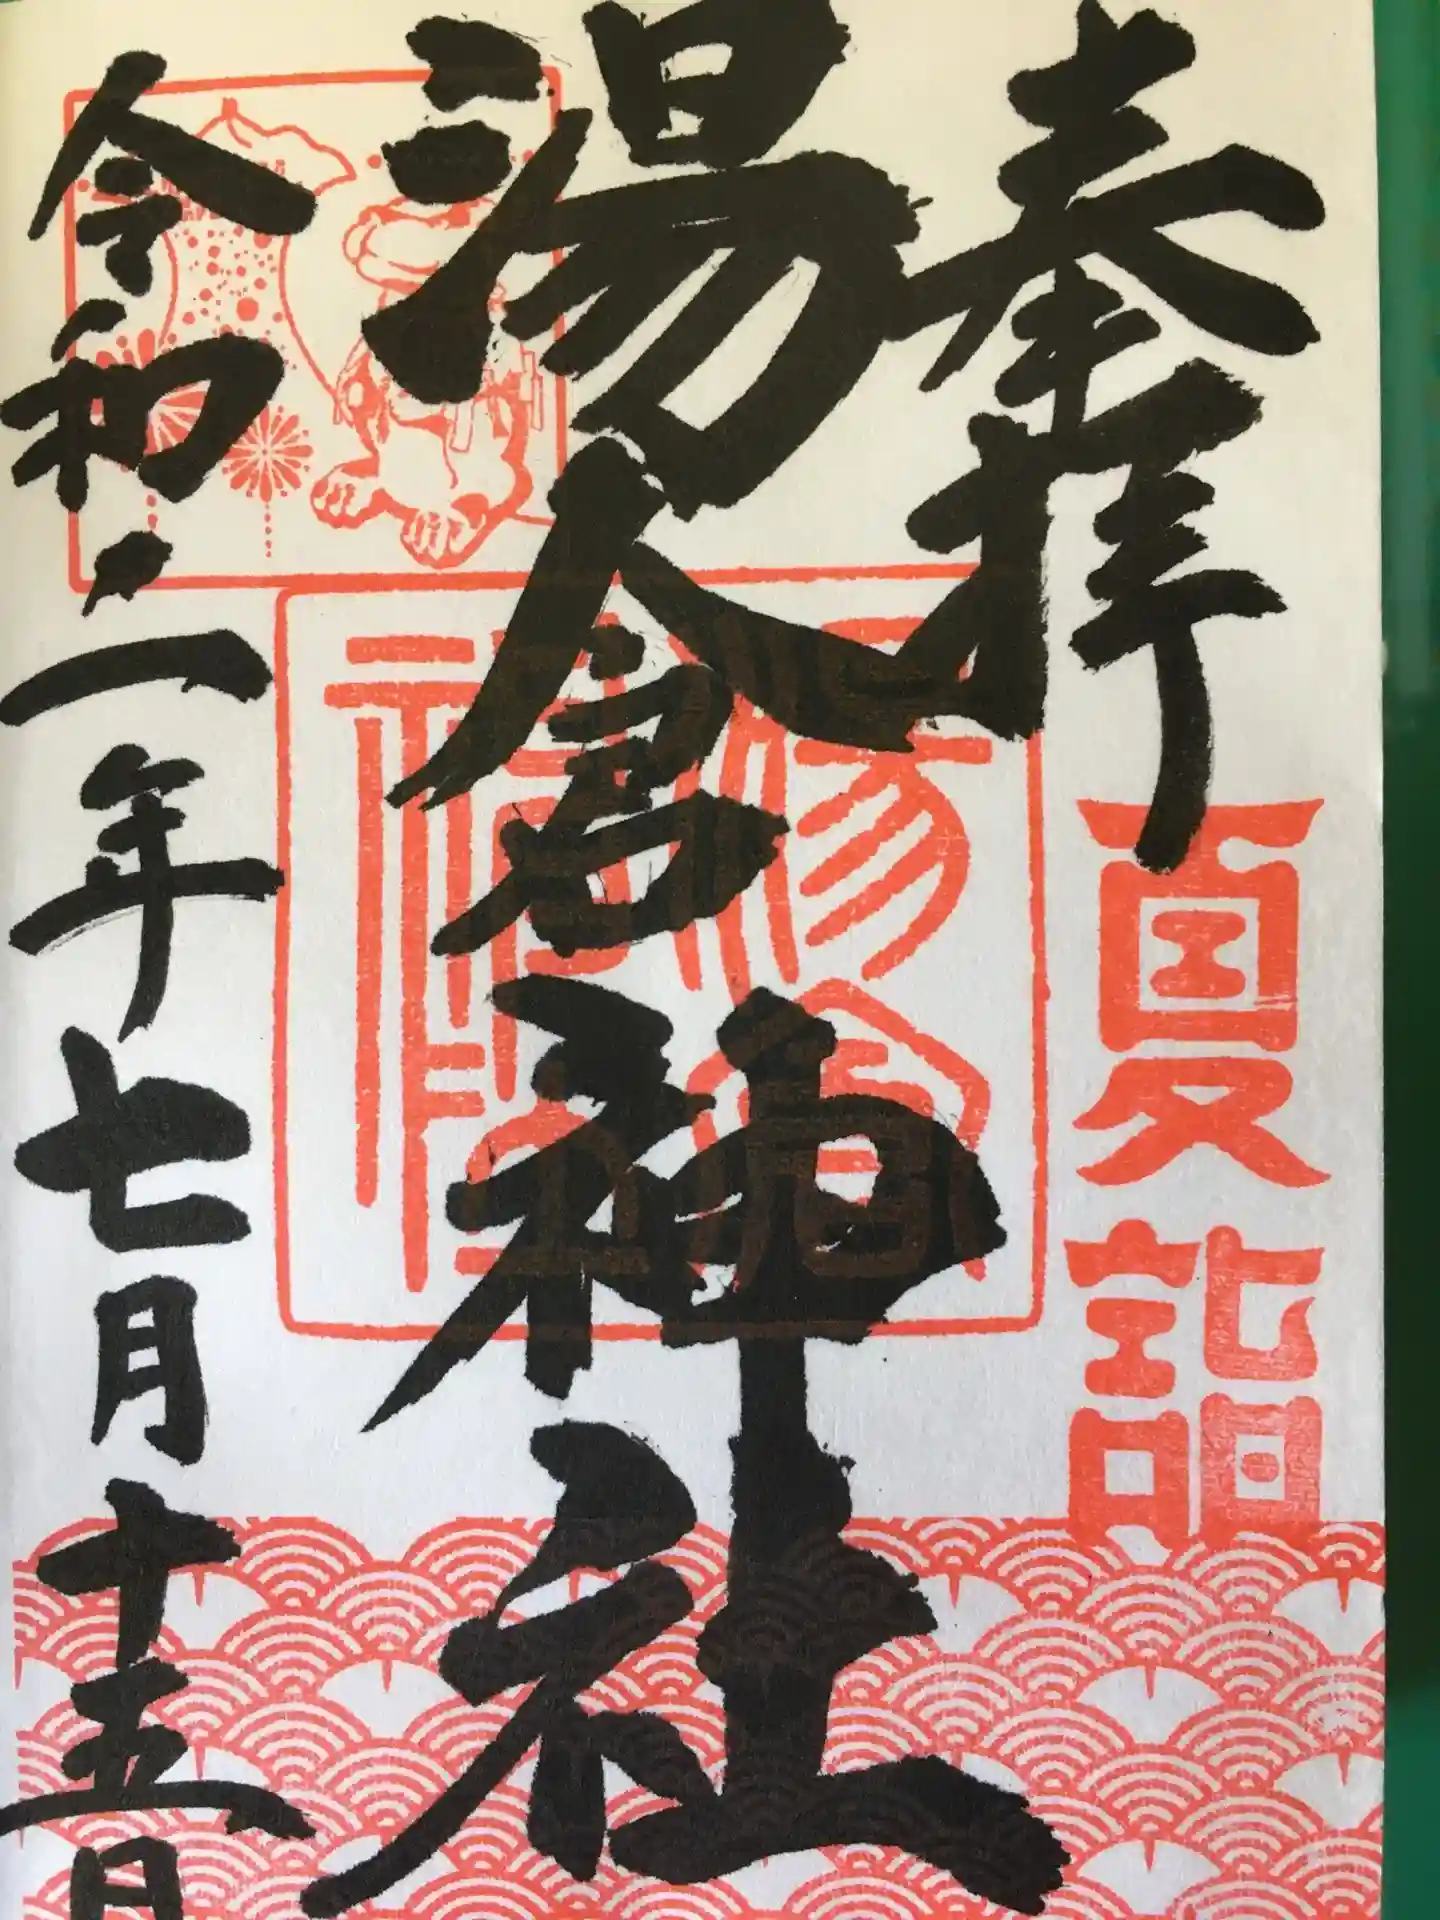 奉拝
夏詣
湯倉神社
湯倉神社
令和二年七月十五日